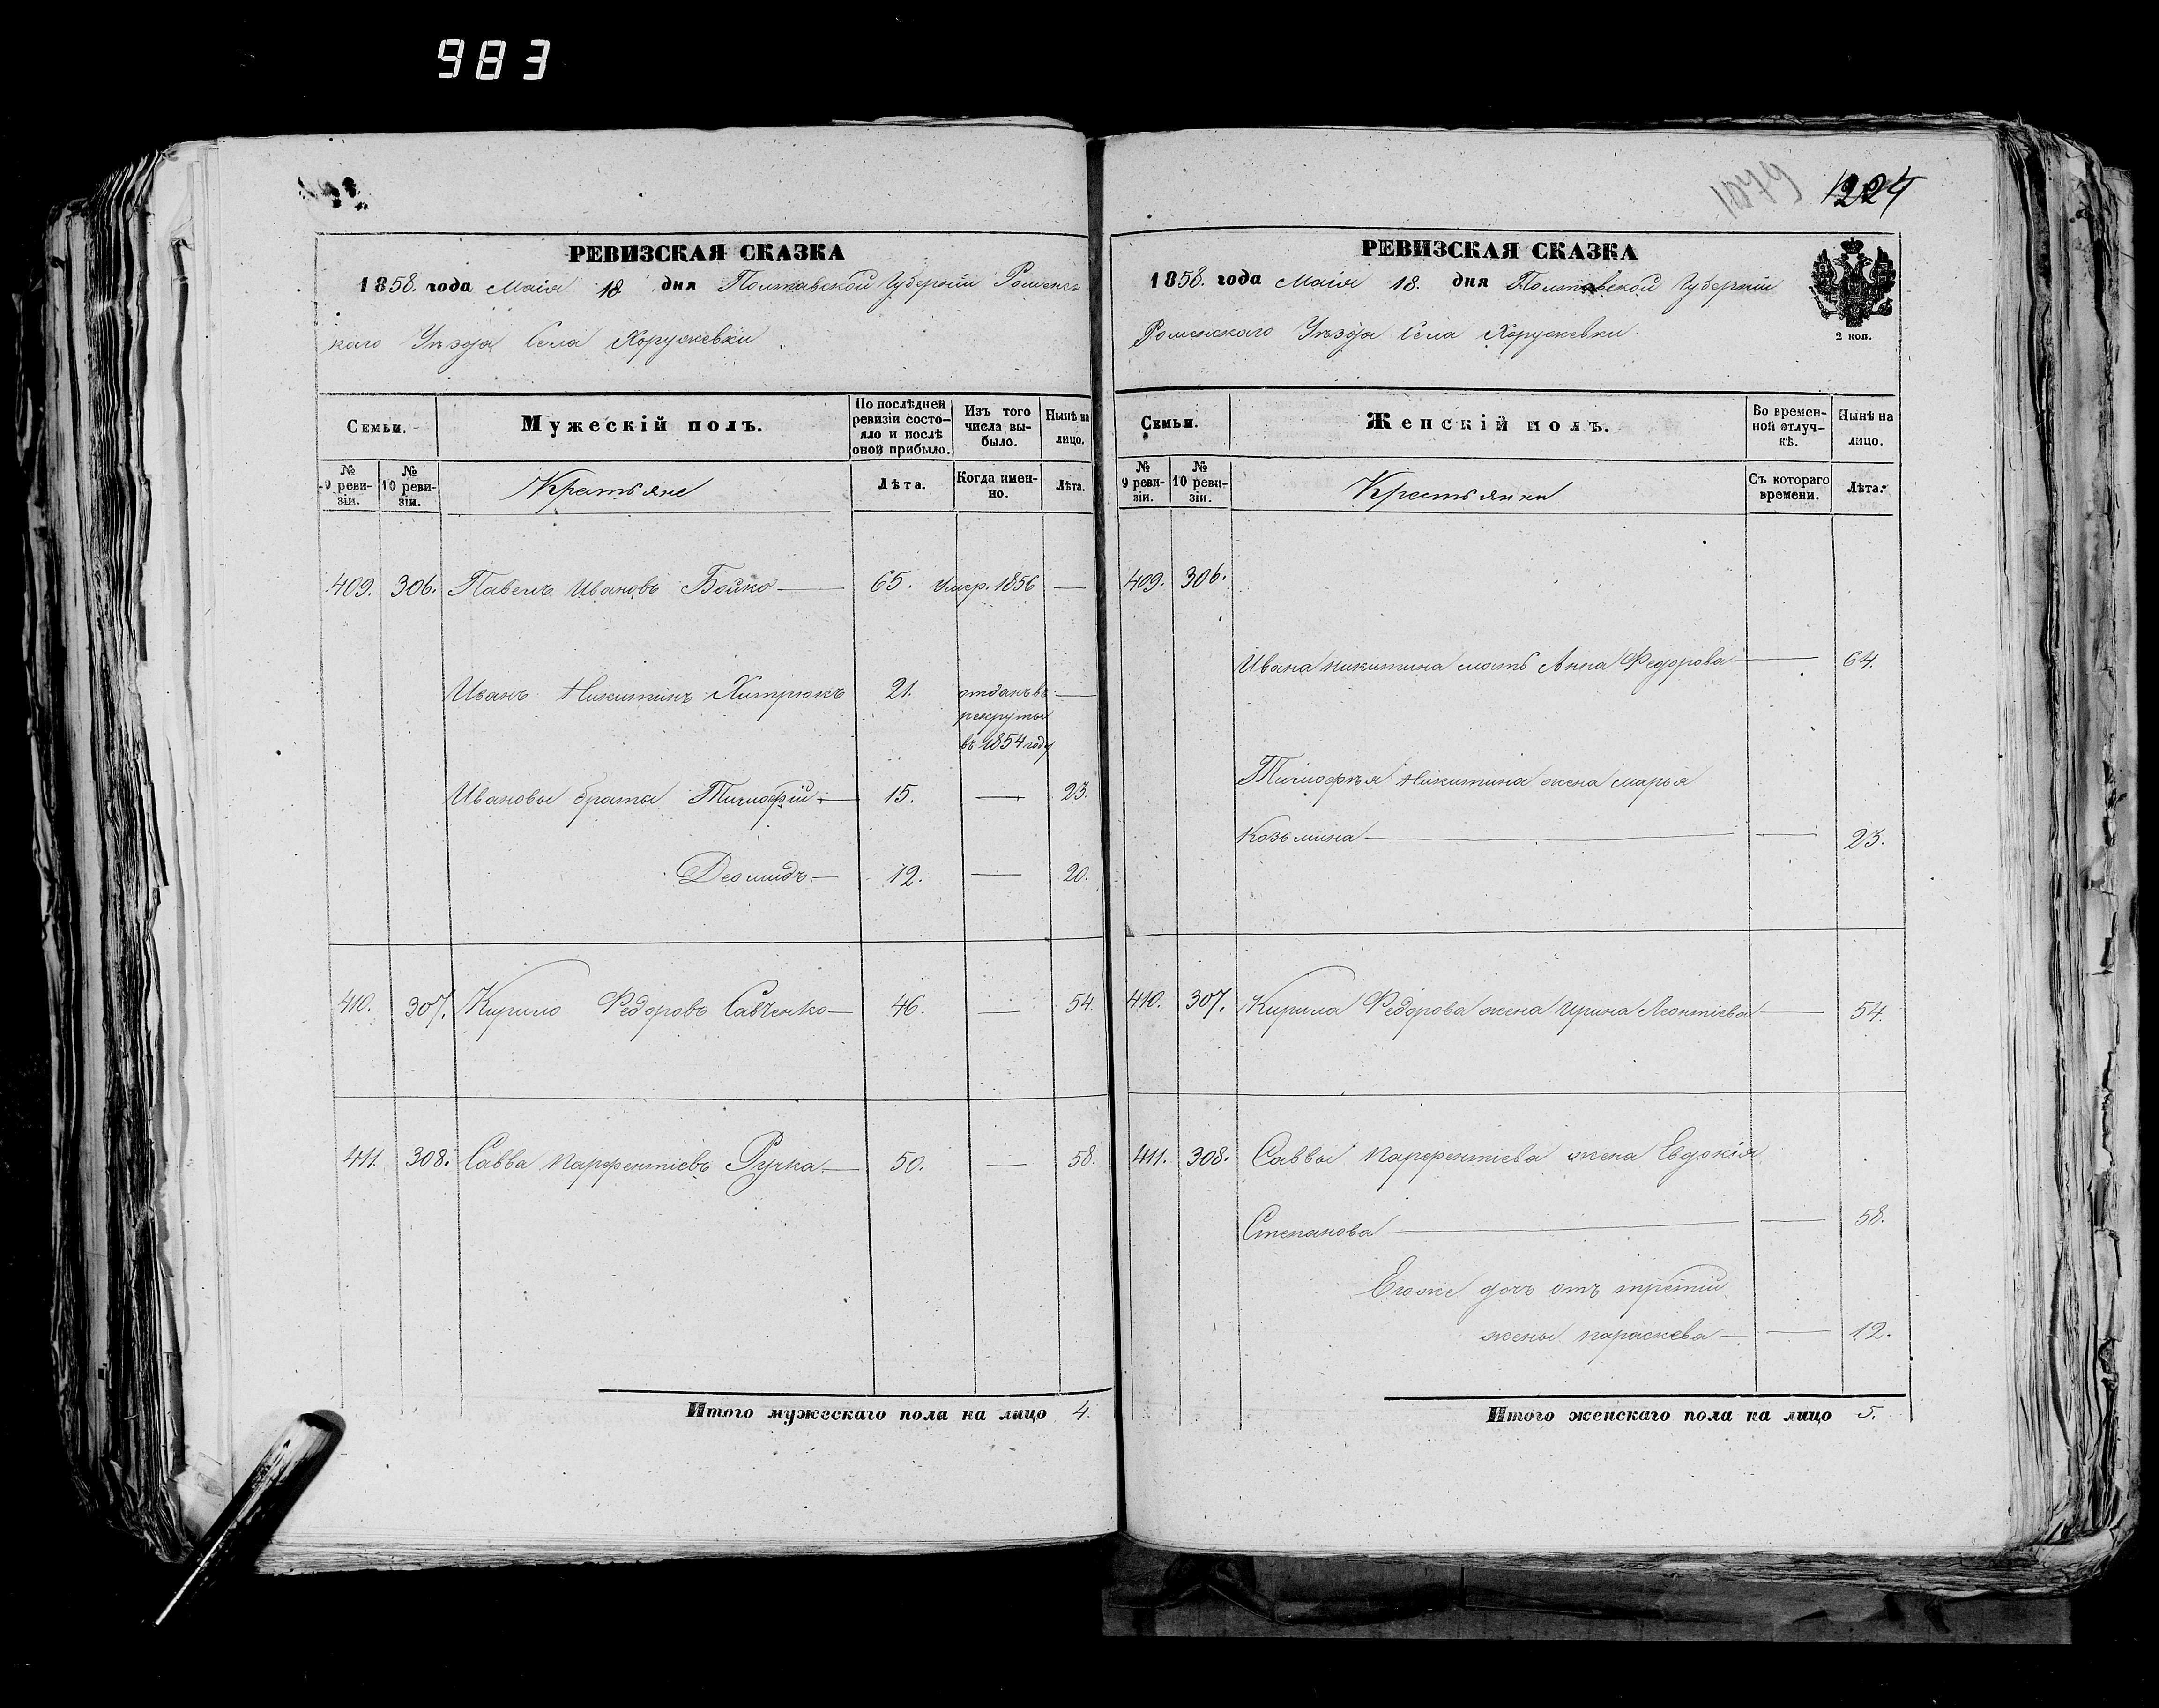 983
РЕВИЗСКАЯ СКАЗКА
1858. года Маія 18 дня Полтавской Губерніи Роменс-
каго Уѣзда Села Хоружевки
Семьи.
Мужескій полъ.
По послѣдней ревизіи состо-яло и послѣ оной прибыло.
Изъ того числа вы-было.
Нынѣ на лицо.
№ 9 реви-зіи.
№ 10 реви-зіи.
Крестьяне
Лѣта.
Когда имен-но.
Лѣта.
409. 306. Павелъ Ивановъ Бойко — 65. умер. 1856 —
Иванъ Никитинъ Хитрюкъ 21. отданъ въ —
рекруты
въ 1854 году
Ивановы братья Тимофій — 15. — 23.
Деомидъ — 12. — 20.
410. 307. Кирило Федоровъ Савченко — 46. — 54.
411. 308. Савва Парфентіевъ Ручка — 50. — 58.
Итого мужескаго пола на лицо 4.
1079 1224
РЕВИЗСКАЯ СКАЗКА
1858. года Маія 18. дня Полтавской Губерніи
Роменскаго Уѣзда Села Хоружевки
2 коп.
Семьи.
Женскій полъ.
Во времен-ной отлуч-кѣ.
Нынѣ на лицо.
№ 9 реви-зіи.
№ 10 реви-зіи.
Крестьянки
Съ котораго времени.
Лѣта.
409. 306.
Ивана Никитина мать Анна Федорова — 64.
Тимофѣя Никитина жена Марья
Козьмина — — 23.
410. 307. Кирила Федорова жена Ирина Леонтіева — 54.
411. 308. Саввы Парфентіева жена Евдокія
Степанова — — 58.
Егоже дочъ отъ третій
жены Параскева — — 12.
Итого женскаго пола на лицо 5.